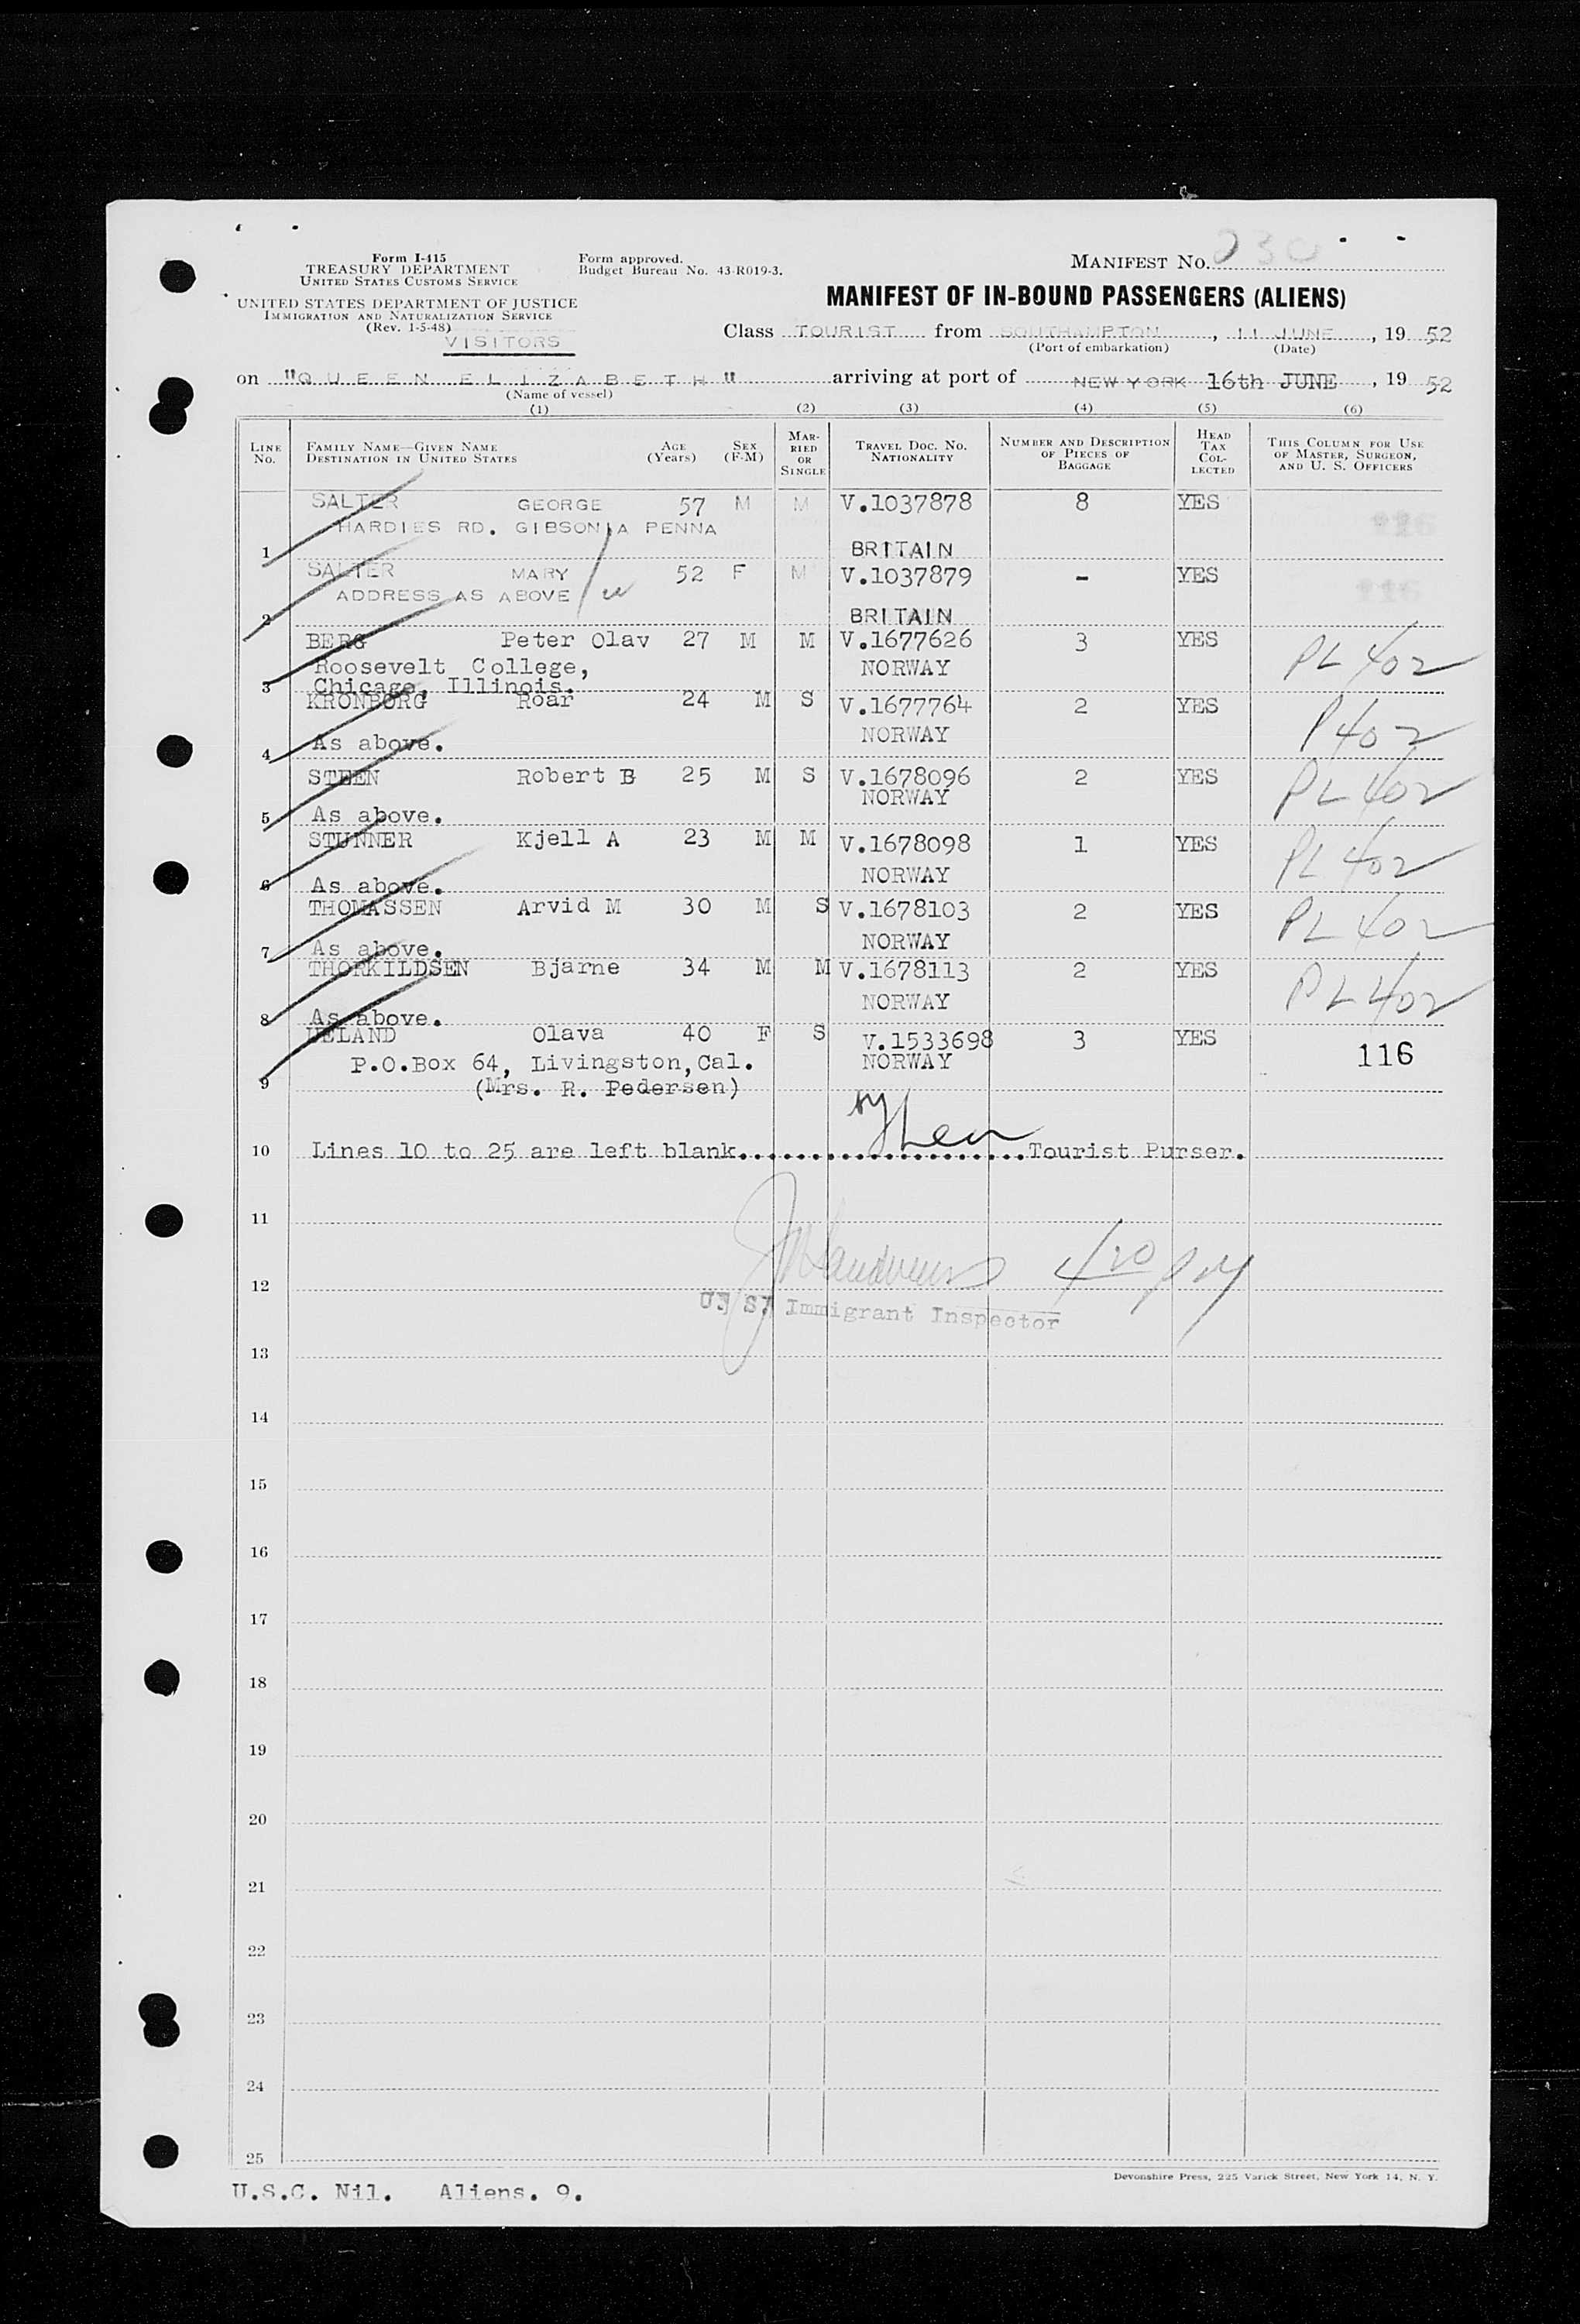 Form I-415
TREASURY DEPARTMENT
UNITED STATES CUSTOMS SERVICE
Form approved.
Budget Bureau No. 43-R019-3.
MANIFEST No. 230
UNITED STATES DEPARTMENT OF JUSTICE
IMMIGRATION AND NATURALIZATION SERVICE
(Rev. 1-5-48)
VISITORS
MANIFEST OF IN-BOUND PASSENGERS (ALIENS)
Class TOURIST from SOUTHAMPTON, 11 JUNE, 19 52
(Port of embarkation) (Date)
on "QUEEN ELIZABETH" arriving at port of NEW YORK 16th JUNE, 19 52
(Name of vessel)
(1) (2) (3) (4) (5) (6)
LINE No. FAMILY NAME—GIVEN NAME DESTINATION IN UNITED STATES AGE (Years) SEX (F-M) MARRIED OR SINGLE TRAVEL DOC. NO. NATIONALITY NUMBER AND DESCRIPTION OF PIECES OF BAGGAGE HEAD TAX COLLECTED THIS COLUMN FOR USE OF MASTER, SURGEON, AND U. S. OFFICERS
SALTER GEORGE 57 M M V.1037878 8 YES 116
HARDIES RD. GIBSONIA PENNA
1 BRITAIN
SALTER MARY 52 F M V.1037879 - YES 116
ADDRESS AS ABOVE
2 BRITAIN
BERG Peter Olav 27 M M V.1677626 3 YES PL 402
Roosevelt College, NORWAY
3 Chicago, Illinois.
KRONBORG Roar 24 M S V.1677764 2 YES P 402
NORWAY
4 As above.
STEEN Robert B 25 M S V.1678096 2 YES PL 402
NORWAY
5 As above.
STUNNER Kjell A 23 M M V.1678098 1 YES PL 402
NORWAY
6 As above.
THOMASSEN Arvid M 30 M S V.1678103 2 YES PL 402
NORWAY
7 As above.
THORKILDSEN Bjarne 34 M M V.1678113 2 YES PL 402
NORWAY
8 As above.
UELAND Olava 40 F S V.1533698 3 YES 116
P.O.Box 64, Livingston,Cal. NORWAY
9 (Mrs. R. Pedersen)
10 Lines 10 to 25 are left blank....................Tourist Purser.
11
12 4 20 PM
U. S. Immigrant Inspector
13
14
15
16
17
18
19
20
21
22
23
24
25
Devonshire Press, 225 Varick Street, New York 14, N. Y.
U.S.C. Nil. Aliens. 9.